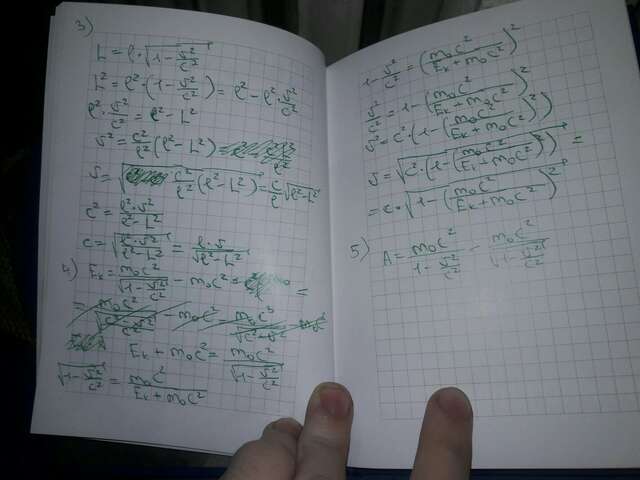 3)
L = l·√(1 − v²/c²)
L² = l²·(1 − v²/c²) = l² − l²·v²/c²
l²·v²/c² = l² − L²
v² = c²/l² (l² − L²)
v = √(c²/l² (l² − L²)) = c/l √(l² − L²)
c² = l²·v²/(l² − L²)
c = √(l²·v²/(l² − L²)) = l·v/√(l² − L²)
4) Eк = m₀c²/√(1 − v²/c²) − m₀c² =
=
Eк + m₀c² = m₀c²/√(1 − v²/c²)
√(1 − v²/c²) = m₀c²/(Eк + m₀c²)
1 − v²/c² = (m₀c²/(Eк + m₀c²))²
v²/c² = 1 − (m₀c²/(Eк + m₀c²))²
v² = c²·(1 − (m₀c²/(Eк + m₀c²))²)
v = √(c²·(1 − (m₀c²/(Eк + m₀c²))²)) =
= c·√(1 − (m₀c²/(Eк + m₀c²))²)
5) A = m₀c²/(1 − v²/c²) − m₀c²/√(1 − v²/c²)